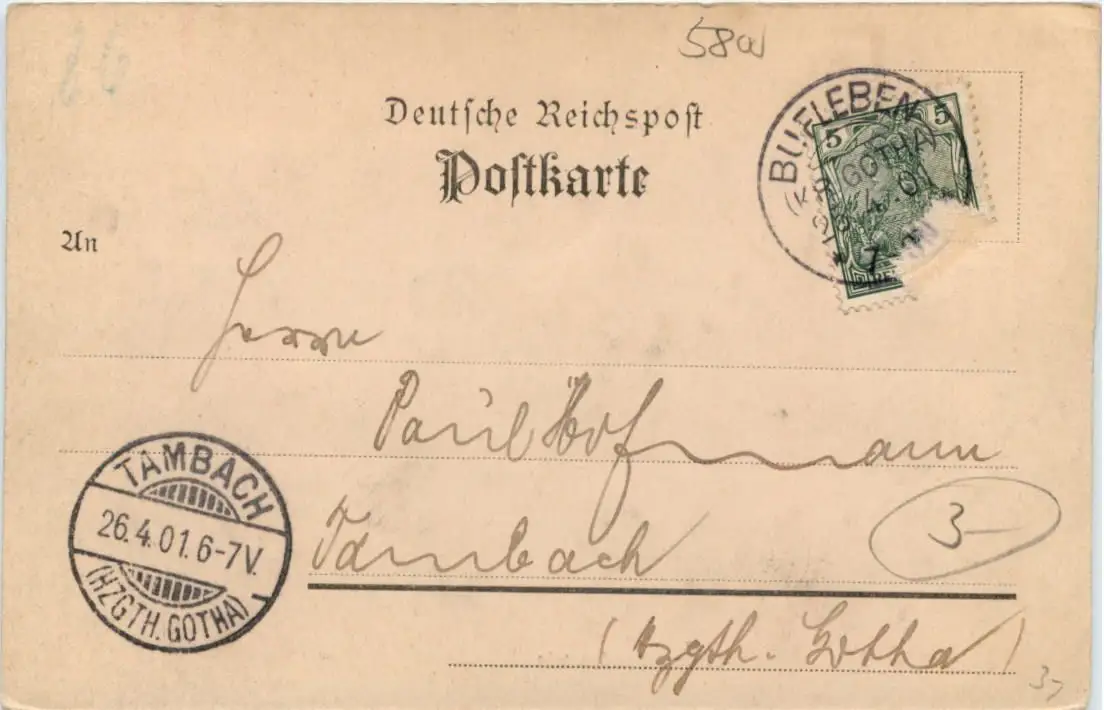 58a
Deutsche Reichspost
Postkarte
BUFLEBEN
(KR. GOTHA)
4.01
7
5
5
An
Herrn
Paul Hofmann
Tambach
(Hzgth. Gotha)
3-
3-
TAMBACH
26.4.01.6-7V.
(HZGTH. GOTHA)